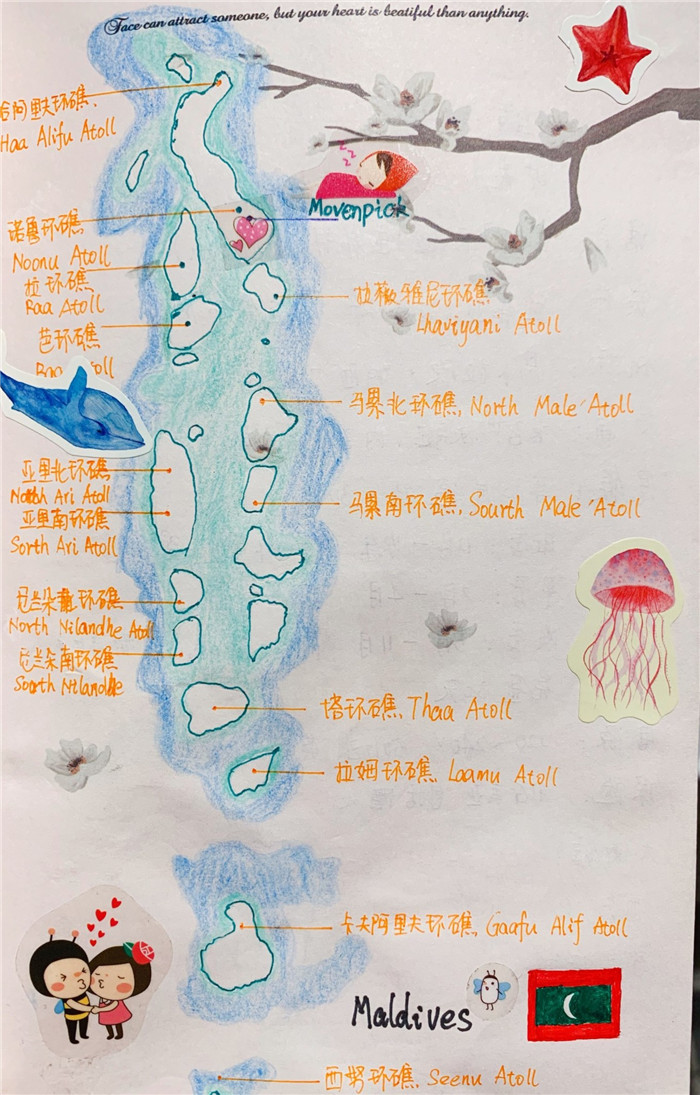 Face can attract someone, but your heart is beatiful than anything.
哈阿里夫环礁.
Haa Alifu Atoll
Movenpick
诺鲁环礁
Noonu Atoll
拉环礁
Raa Atoll
芭环礁
拉薇雅尼环礁
Lhaviyani Atoll
马累北环礁, North Male'Atoll
亚里北环礁
North Ari Atoll
亚里南环礁
Sorth Ari Atoll
马累南环礁, Sourth Male'Atoll
尼兰朵北环礁
North Nilandhe Atoll
尼兰朵南环礁
South Nilandhe
塔环礁, Thaa Atoll
拉姆环礁, Laamu Atoll
卡夫阿里夫环礁, Gaafu Alif Atoll
Maldives
西努环礁, Seenu Atoll